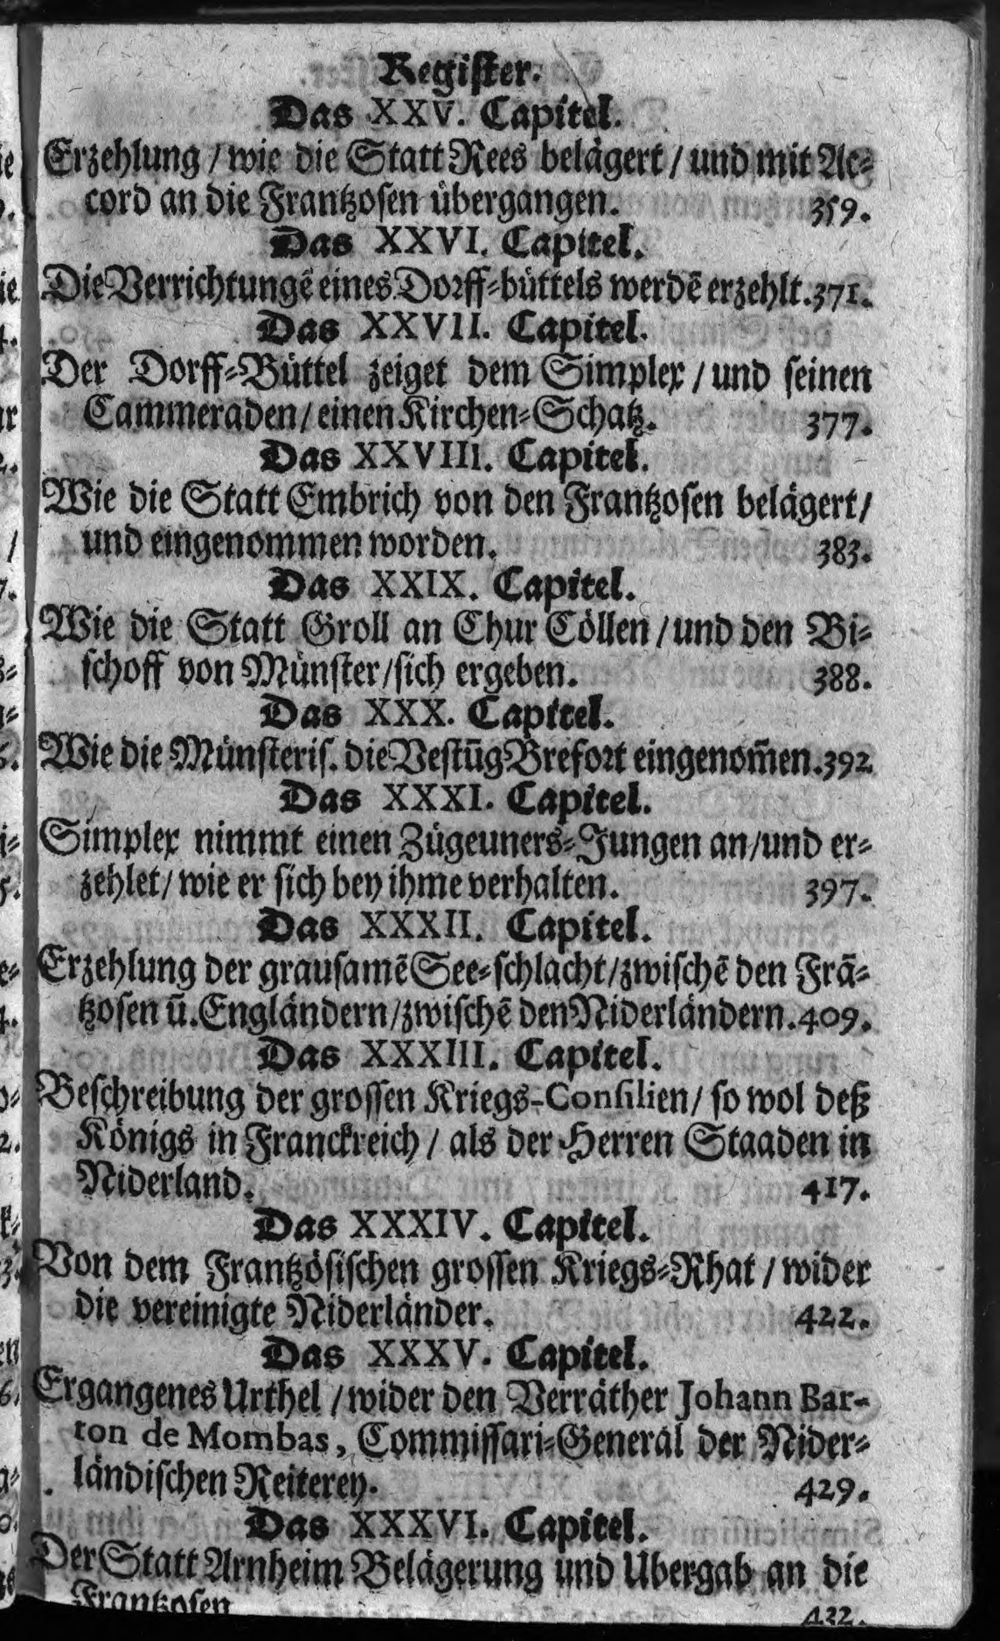 Register.
Das XXV. Capitel.
Erzehlung / wie die Statt Rees belägert / und mit Ac-
cord an die Frantzosen übergangen. 359.
Das XXVI. Capitel.
Die Verrichtungē eines Dorff-büttels werdē erzehlt. 371.
Das XXVII. Capitel.
Der Dorff-Büttel zeiget dem Simplex / und seinen
Cammeraden / einen Kirchen-Schatz. 377.
Das XXVIII. Capitel.
Wie die Statt Embrich von den Frantzosen belägert /
und eingenommen worden. 383.
Das XXIX. Capitel.
Wie die Statt Groll an Chur Cöllen / und den Bi-
schoff von Münster / sich ergeben. 388.
Das XXX. Capitel.
Wie die Münsteris. die Vestūg Brefort eingenom̄en. 392
Das XXXI. Capitel.
Simplex nimmt einen Zügeuners-Jungen an / und er-
zehlet / wie er sich bey ihme verhalten. 397.
Das XXXII. Capitel.
Erzehlung der grausamē See-schlacht / zwischē den Frā-
tzosen ū. Engländern / zwischē den Niderländern. 409.
Das XXXIII. Capitel.
Beschreibung der grossen Kriegs-Consilien / so wol deß
Königs in Franckreich / als der Herren Staaden in
Niderland. 417.
Das XXXIV. Capitel.
Von dem Frantzösischen grossen Kriegs-Rhat / wider
die vereinigte Niderländer. 422.
Das XXXV. Capitel.
Ergangenes Urthel / wider den Verräther Johann Bar-
ton de Mombas, Commissari-General der Nider-
ländischen Reiterey. 429.
Das XXXVI. Capitel.
Der Statt Arnheim Belägerung und Ubergab an die
Frantzosen 432.